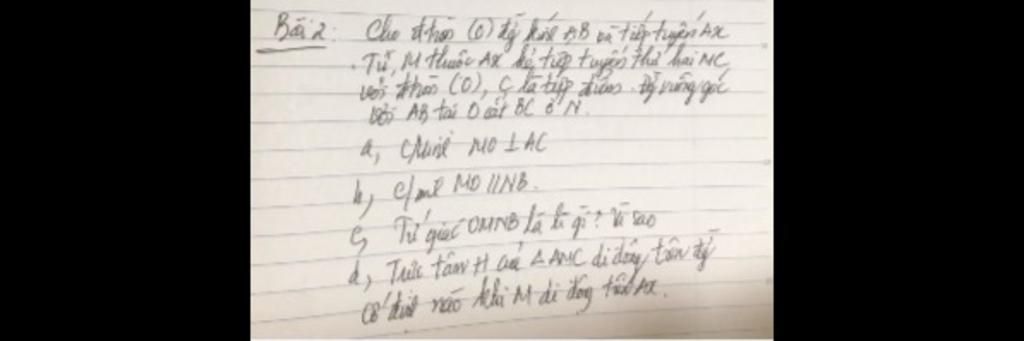 Bài 2: Cho đtròn (O) đg kính AB và tiếp tuyến Ax
Từ M thuộc Ax kẻ tiếp tuyến thứ hai MC
với đtròn (O), C là tiếp điểm. Đg vuông góc
với AB tại O cắt BC ở N.
a, C/Minh MO ⊥ AC
b, c/m MO // NB.
c, Tứ giác OMNB là h gì? Vì sao
d, Trực tâm H của △AMC di động trên đg
cố định nào khi M di động trên Ax.